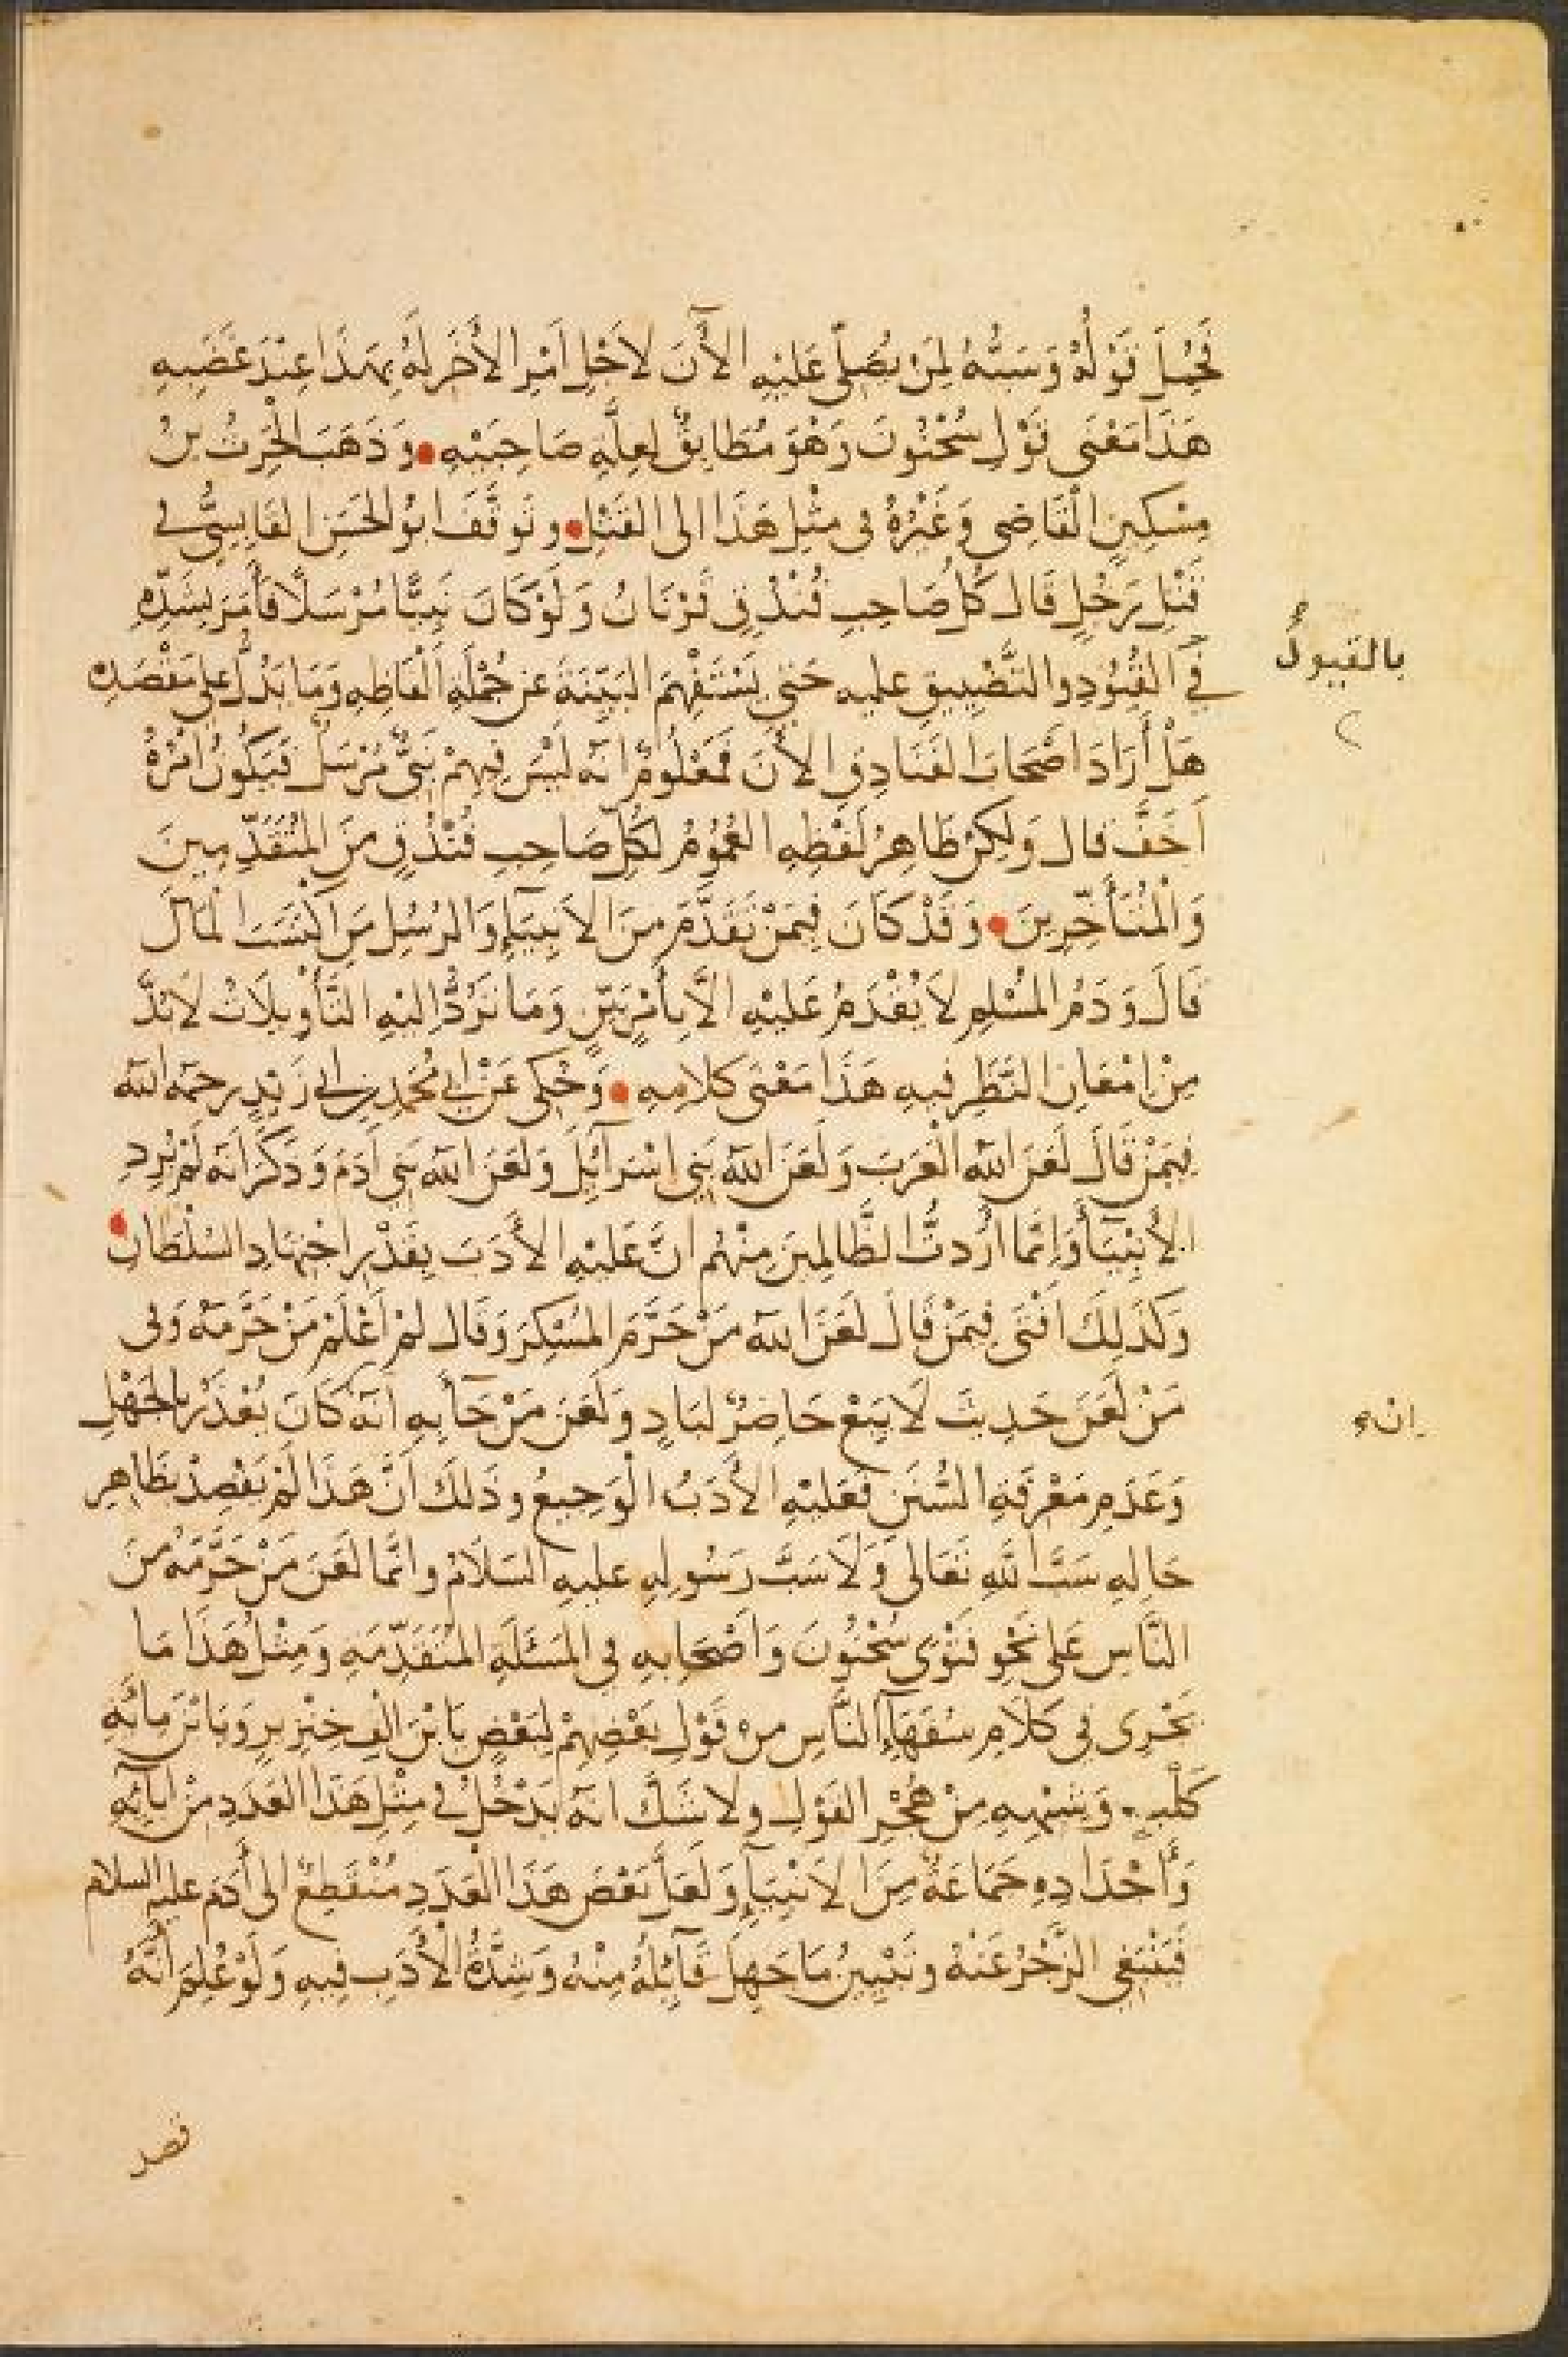 فَحُمِلَ قَوْلُهُ وَسَبُّهُ لِمَنْ يُصَلِّي عَلَيْهِ الْآنَ لِاَجْلِ اَمْرِ الْآخَرِ لَهُ بِهَذَا عِنْدَ غَضَبِهِ
هَذَا مَعْنَى قَوْلِ سُحْنُونَ وَهْوَ مُطَابِقٌ لِعِلَّةِ صَاحِبَيْهِ • وَذَهَبَ الْحَرِثُ بْنُ
مِسْكِينٍ الْقَاضِي وَغَيْرُهُ فى مِثْلِ هَذَا الى القَتْلِ • وتَوَقَّفَ ابُو الحَسَنِ القَابِسِيُّ فى
قَتْلِ رَجُلٍ قَالَ كُلُّ صَاحِبِ فُنْدُقٍ قَرْنَانُ وَلَوْ كَانَ نَبِيًّا مُرْسَلًا فَأَمَرَ بِشَدِّهِ
فى القُيُودِ والتَّضْيِيقِ عليه حَتى يَسْتَفْهِمَ البَيِّنَةَ عَنْ جُمْلَةِ اَلْفَاظِهِ وَمَا يَدُلُّ على مَقْصَدِهِ
هَلْ أَرَادَ اَصْحَابَ الفَنَادِقِ الْآنَ فَمَعْلُومٌ انَّه لَيْسَ فِيهِمْ نَبِيٌّ مُرْسَلٌ فَيَكُونُ اَمْرُهُ
اَخَفَّ قال وَلَكِنْ ظَاهِرُ لَفْظِهِ العُمُومُ لِكُلِّ صَاحِبِ فُنْدُقٍ مِنَ المُتَقَدِّمِينَ
وَالْمُتَأَخِّرِينَ • وَقَدْ كَانَ فِيمَنْ تَقَدَّمَ مِنَ الاَنبِيَآءِ وَالرُسُلِ مَنِ اكْتَسَبَ الْمَالَ
قَالَ وَدَمُ المُسْلِمِ لَا يُقْدَمُ عَلَيْهِ الَّا بِأَمْرٍ بَيِّنٍ وَمَا تَرُدُّ إِليْهِ التَّأْوِيلَاتُ لَابُدَّ
مِنْ اِمْعَانِ النَّظَرِ فِيهِ هَذَا مَعْنَى كَلَامِهِ • وَحُكِىَ عَنْ ابى مُحَمَّدِ بن ابى زَيْدٍ رحمَه الله
فِيمَنْ قَالَ لَعَنَ الله الْعَرَبَ وَلَعَنَ الله بَنِي اسْرَآئِلَ وَلَعَنَ الله بَنِي اَدَمَ وَذَكَرَ انَّه لَمْ يُرِدِ
الْأَنْبِيَآءَ وَاِنَّمَا اَرَدتُّ الظَّالِمِينَ مِنْهُم انَّ عَلَيْهِ الْأَدَبَ بِقَدْرِ اجْتِهَادِ السُلْطَانِ •
وَكَذَلِكَ اَفْتَى فِيمَنْ قَالَ لَعَنَ الله مَنْ حَرَّمَ المُسْكِرَ وَقَال لمْ اَعْلَمْ مَنْ حَرَّمَهُ وَفى
مَنْ لَعَنَ حَدِيثَ لَا يَبِعْ حَاضِرٌ لِبَادٍ وَلَعَنَ مَنْ جَآءَ بِهِ انَّه كَانَ يُعْذَرُ بالجَهْلِ
وَعَدَمِ مَعْرِفَةِ السُّنَنِ فَعَلَيْهِ الْأَدَبُ الْوَجِيعُ وذَلكَ اَنَّ هَذَا لَمْ يَقْصِدْ بِظَاهِر
حَالِهِ سَبَّ اللَّهِ تَعَالى وَلَا سَبَّ رَسُولِهِ عليهِ السَلَامُ وانَّمَا لَعَنَ مَنْ حَرَّمَهُ مِنَ
النَّاسِ عَلَى نَحْوِ فَتْوَى سُحْنُونَ وَاَصْحَابِهِ فى المَسْئَلَةِ المُتَقَدِّمَةِ وَمِثْلُ هَذَا مَا
يَجْرِى فى كَلَامِ سُفَهَآءِ النَّاسِ مِنْ قَوْلِ بَعْضِهِمْ لِبَعْضٍ يَا بْنَ الفِ خِنْزِيرٍ وَيَا بْنَ مِائَةِ
كَلْبٍ • وَشِبْهِهِ مِنْ هُجْرِ القَوْلِ ولا شَكَّ انَّه يَدْخُلُ فى مِثْلِ هَذَا العَدَدِ مِنْ ابَآئِهِ
وَأَجْدَادِهِ جَمَاعَةٌ مِنَ الاَنْبِيَآءِ وَلَعَلَّ بَعْضَ هَذَا الْعَدَدِ مُنْقَطِعٌ الى أَدَم عليه السلام
فَيَنْبَغِي الزَّجْرُ عَنْهُ وتَبْيِينُ مَا جَهِلَ قَآئِلُهُ مِنْهُ وَشِدَّةُ الْأَدَبِ فِيهِ وَلَوْ عُلِمَ أَنَّهُ
قصد
بالقيود
ان